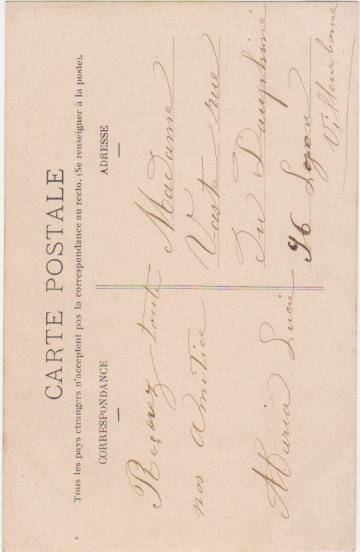 CARTE POSTALE
Tous les pays etrangers n'acceptent pas la correspondance au recto. (Se renseigner à la poste).
CORRESPONDANCE
Recevez toute
nos Amitiée
Maria Lucie
ADRESSE
Madame
Vast rue
Du Dauphiné
96 Lyon
Villeurbanne